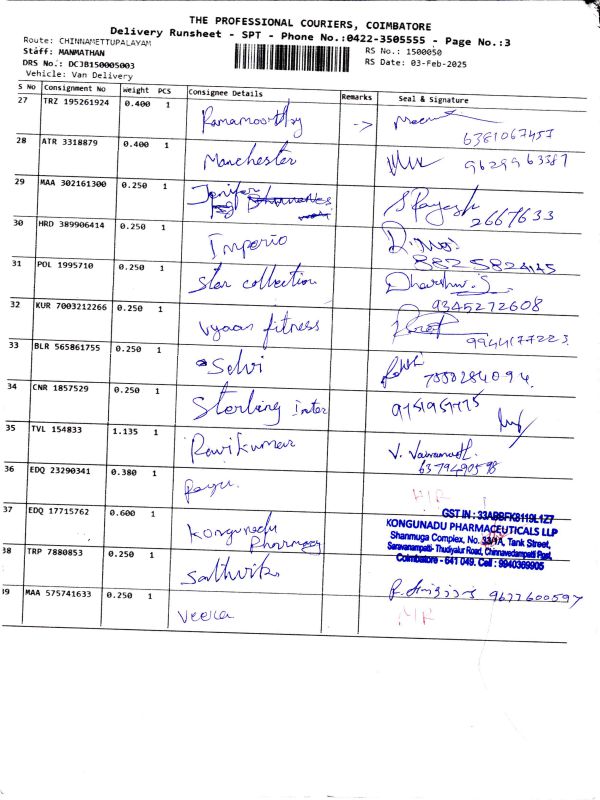 THE PROFESSIONAL COURIERS, COIMBATORE
Delivery Runsheet - SPT - Phone No.:0422-3505555 - Page No.:3
Route: CHINNAMETTUPALAYAM
RS No.: 1500050
Staff: MANMATHAN
RS Date: 03-Feb-2025
DRS No.: DCJB150005003
Vehicle: Van Delivery
S No Consignment No Weight PCS Consignee Details Remarks Seal & Signature
27 TRZ 195261924 0.400 1 Ramamoorthy ->
6381067457
28 ATR 3318879 0.400 1 Manchester
9629963387
29 MAA 302161300 0.250 1 Jenifer
2667633
30 HRD 389906414 0.250 1 Imperio
8825824145
31 POL 1995710 0.250 1 Star collection Dharshini.S
9345272608
32 KUR 7003212266 0.250 1 Vyaan fitness
9944177223
33 BLR 565861755 0.250 1 Selvi
7550284094
34 CNR 1857529 0.250 1 Sterling inter 9751951775
35 TVL 154833 1.135 1 Ravikumar
6379490598
36 EDQ 23290341 0.380 1
37 EDQ 17715762 0.600 1 Kongunadu Pharmacy
GST IN : 33ABBFK8119L1Z7
KONGUNADU PHARMACEUTICALS LLP
Shanmuga Complex, No. 33/1A, Tank Street,
Saravanampatti- Thudiyalur Road, Chinnavedampatti Post,
Coimbatore - 641 049. Cell : 9940369905
38 TRP 7880853 0.250 1 Sathvik
9677600597
39 MAA 575741633 0.250 1 Veera